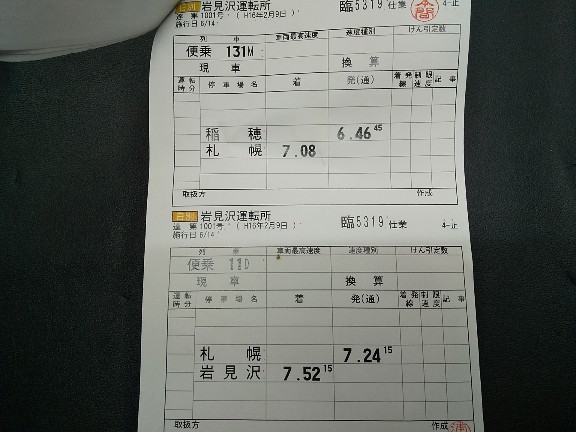 日別 岩見沢運転所 臨5319 仕業 4-止
達 第1001号 ( H16年2月9日 )
施行日 6/14
列 車 車両最高速度 速度種別 けん引定数
便乗 131M
現 車 換 算
運転時分 停車場名 着 発(通) 着発線 制限速度 記事
稲 穂 6.46 45
札 幌 7.08
取扱方 作成
日別 岩見沢運転所 臨5319 仕業 4-止
達 第1001号 ( H16年2月9日 )
施行日 6/14
列 車 車両最高速度 速度種別 けん引定数
便乗 11D
現 車 換 算
運転時分 停車場名 着 発(通) 着発線 制限速度 記事
札 幌 7.24 15
岩見沢 7.52 15
取扱方 作成